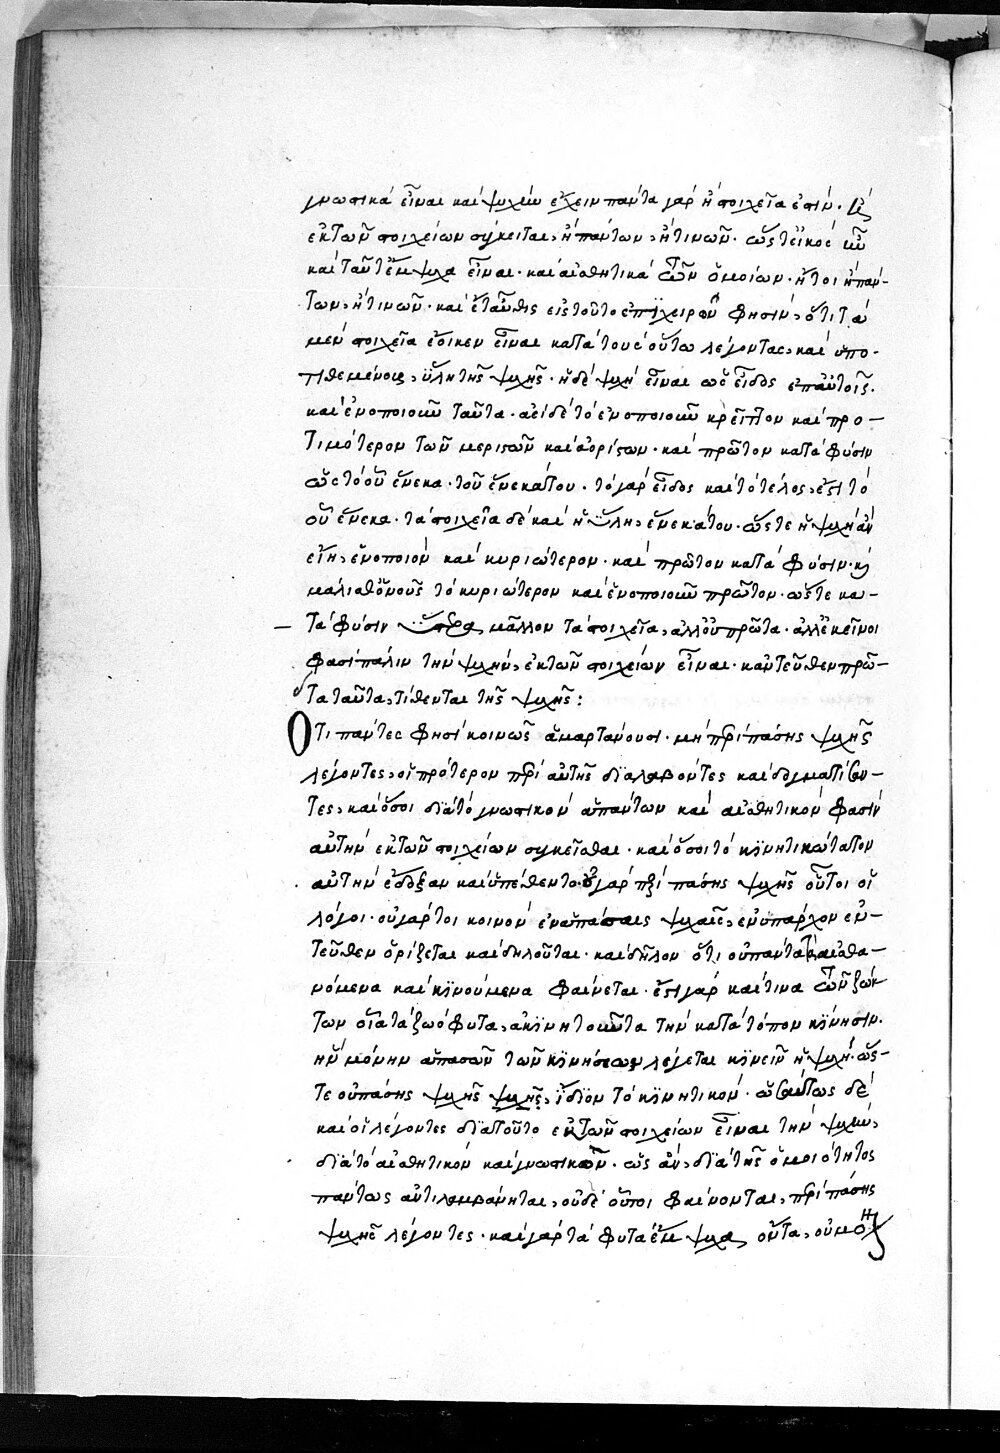 γνωστικά εἶναι καί ψυχήν ἔχειν πάντα γάρ ἤ στοιχεῖα ἐστίν. ἤ
ἐκ τῶν στοιχείων σύγκειται, ἤ πάντων, ἤ τινῶν. ὥστε εἰκός
καί ταῦτ' ἔμψυχα εἶναι. καί αἰσθητικά τῶν ὁμοίων. ἤτοι ἤ πάν-
των, ἤ τινῶν. καί ἐνταῦθα εἰς τοῦτο ἐπιχειρῶν φησίν, ὅτι τά
μέν στοιχεῖα ἔοικεν εἶναι κατά τούς οὕτω λέγοντας, καί ὑπο-
τιθεμένους, ὕλη τῆς ψυχῆς. ἡ δέ ψυχή εἶναι ὡς εἶδος ἐπ' αὐτοῖς.
καί ἑνοποιοῦν ταῦτα. ἀεί δέ τό ἑνοποιοῦν κρεῖττον καί προ-
τιμότερον τῶν μεριστῶν καί ἀορίστων. καί πρῶτον κατά φύσιν
ὡς τό οὗ ἕνεκα. τοῦ ἕνεκά του. τό γάρ εἶδος καί τό τέλος, ἐστί τό
οὗ ἕνεκα. τά στοιχεῖα δέ καί ἡ ὕλη, ἕνεκά του. ὥστε ἡ ψυχή ἄν
εἴη, ἑνοποιόν καί κυριώτερον. καί πρῶτον κατά φύσιν. καί
μάλισθ' ὁ νοῦς τό κυριώτερον καί ἑνοποιοῦν πρῶτον. ὥστε κα-
τά φύσιν ὕστερα μᾶλλον τά στοιχεῖα, ἀλλ' οὐ πρῶτα. ἀλλ' ἐκεῖνοι
φασί πάλιν τήν ψυχήν, ἐκ τῶν στοιχείων εἶναι. κἀντεῦθεν πρῶ-
τα ταῦτα, τίθενται τῆς ψυχῆς:
Ὅτι πάντες φησί κοινῶς ἁμαρτάνουσι. μή περί πάσης ψυχῆς
λέγοντες, οἱ πρότερον περί αὐτῆς διαλαβόντες καί δογματίσαν-
τες, καί ὅσοι διά τό γνωστικόν ἁπάντων καί αἰσθητικόν φασίν
αὐτήν ἐκ τῶν στοιχείων συγκεῖσθαι. καί ὅσοι τό κινητικώτατον
αὐτήν ἔδοξαν καί ὑπέθεντο. οὐ γάρ περί πάσης ψυχῆς οὗτοι οἱ
λόγοι. οὐ γάρ τοι κοινόν ἐν ἁπάσαις ψυχαῖς, ἐνυπάρχον ἐν-
τεῦθεν ὁρίζεται καί δηλοῦται. καί δῆλον ὅτι οὐ πάντα τά αἰσθα-
νόμενα καί κινούμενα φαίνεται. ἔστι γάρ καί τινα τῶν ζών-
των οἷα τά ζωόφυτα, ἀκίνητα ὄντα τήν κατά τόπον κίνησιν.
ἥν μόνην ἁπασῶν τῶν κινήσεων λέγεται κινεῖν ἡ ψυχή. ὥσ-
τε οὐ πάσης ψυχῆς ψυχῆς, ἴδιον τό κινητικόν. ὡσαύτως δέ
καί οἱ λέγοντες διά τοῦτο ἐκ τῶν στοιχείων εἶναι τήν ψυχήν,
διά τό αἰσθητικόν καί γνωστικόν. ὡς ἄν, διά τῆς ὁμοιότητος
πάντως ἀντιλαμβάνηται, οὐδέ οὗτοι φαίνονται, περί πάσης
ψυχῆς λέγοντες. καί γάρ τά φυτά ἔμψυχα ὄντα, οὐ μόνον